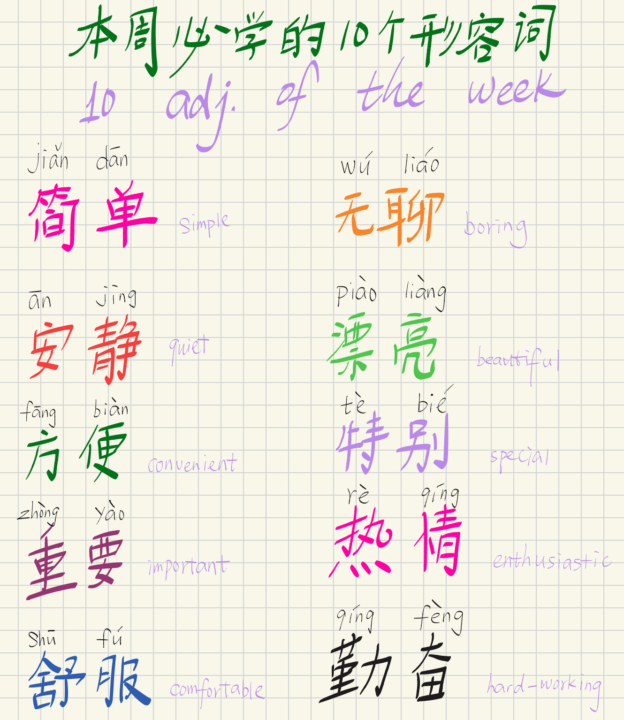 本周必学的10个形容词
10 adj. of the week
jiǎn dān
简单 simple
wú liáo
无聊 boring
ān jīng
安静 quiet
piào liàng
漂亮 beautiful
fāng biàn
方便 convenient
tè bié
特别 special
zhòng yào
重要 important
rè qíng
热情 enthusiastic
shū fú
舒服 comfortable
qíng fèng
勤奋 hard-working